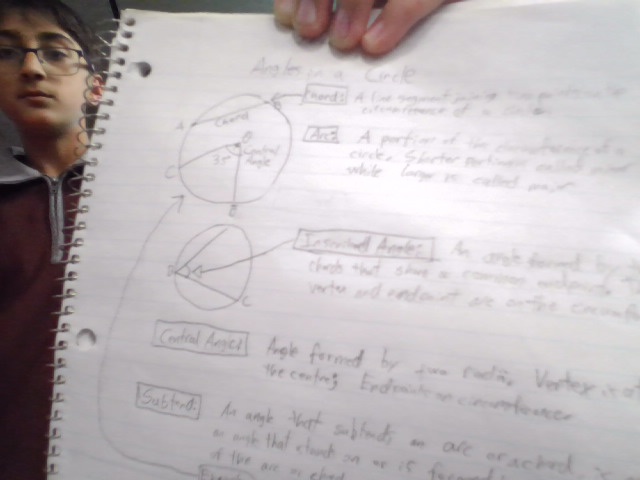 Angles in a Circle
Chord: A line segment
circumference of a
A
Chord
Arc: A portion of the circumference of a
circle. Shorter portion called minor
while larger is called major
O
Central
Angle
C
B
Inscribed Angles: An angle formed by
chords that share a common endpoint.
vertex and endpoint are on the
C
Central Angle: Angle formed by two radii. Vertex is at
the centre; Endpoints on circumference
Subtend: An angle that subtends an arc or chord is
an angle that stands on or is formed
of the arc or chord